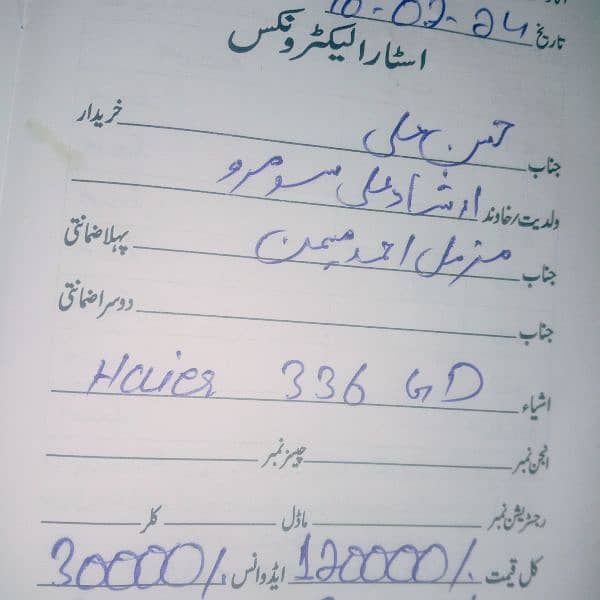 تاریخ 10-02-24
اسٹار الیکٹرونکس
جناب حسن علی خریدار
ولدیت/خاوند ارشاد علی سومرو
جناب مزمل احمد میمن پہلا ضمانتی
جناب دوسرا ضمانتی
اشیاء Haier 336 GD
انجن نمبر چیسز نمبر
رجسٹریشن نمبر ماڈل کلر
کل قیمت 120000/. ایڈوانس 30000/.